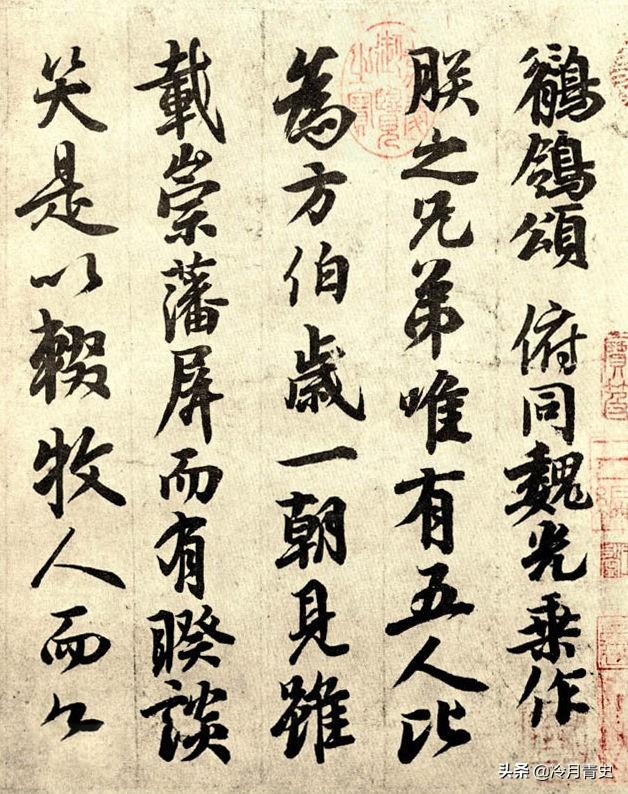 鶺鴒頌 俯同魏光乘作
朕之兄弟唯有五人比
為方伯歲一朝見雖
載崇藩屏而有睽談
笑是以輟牧人而各
头条 @冷月青史